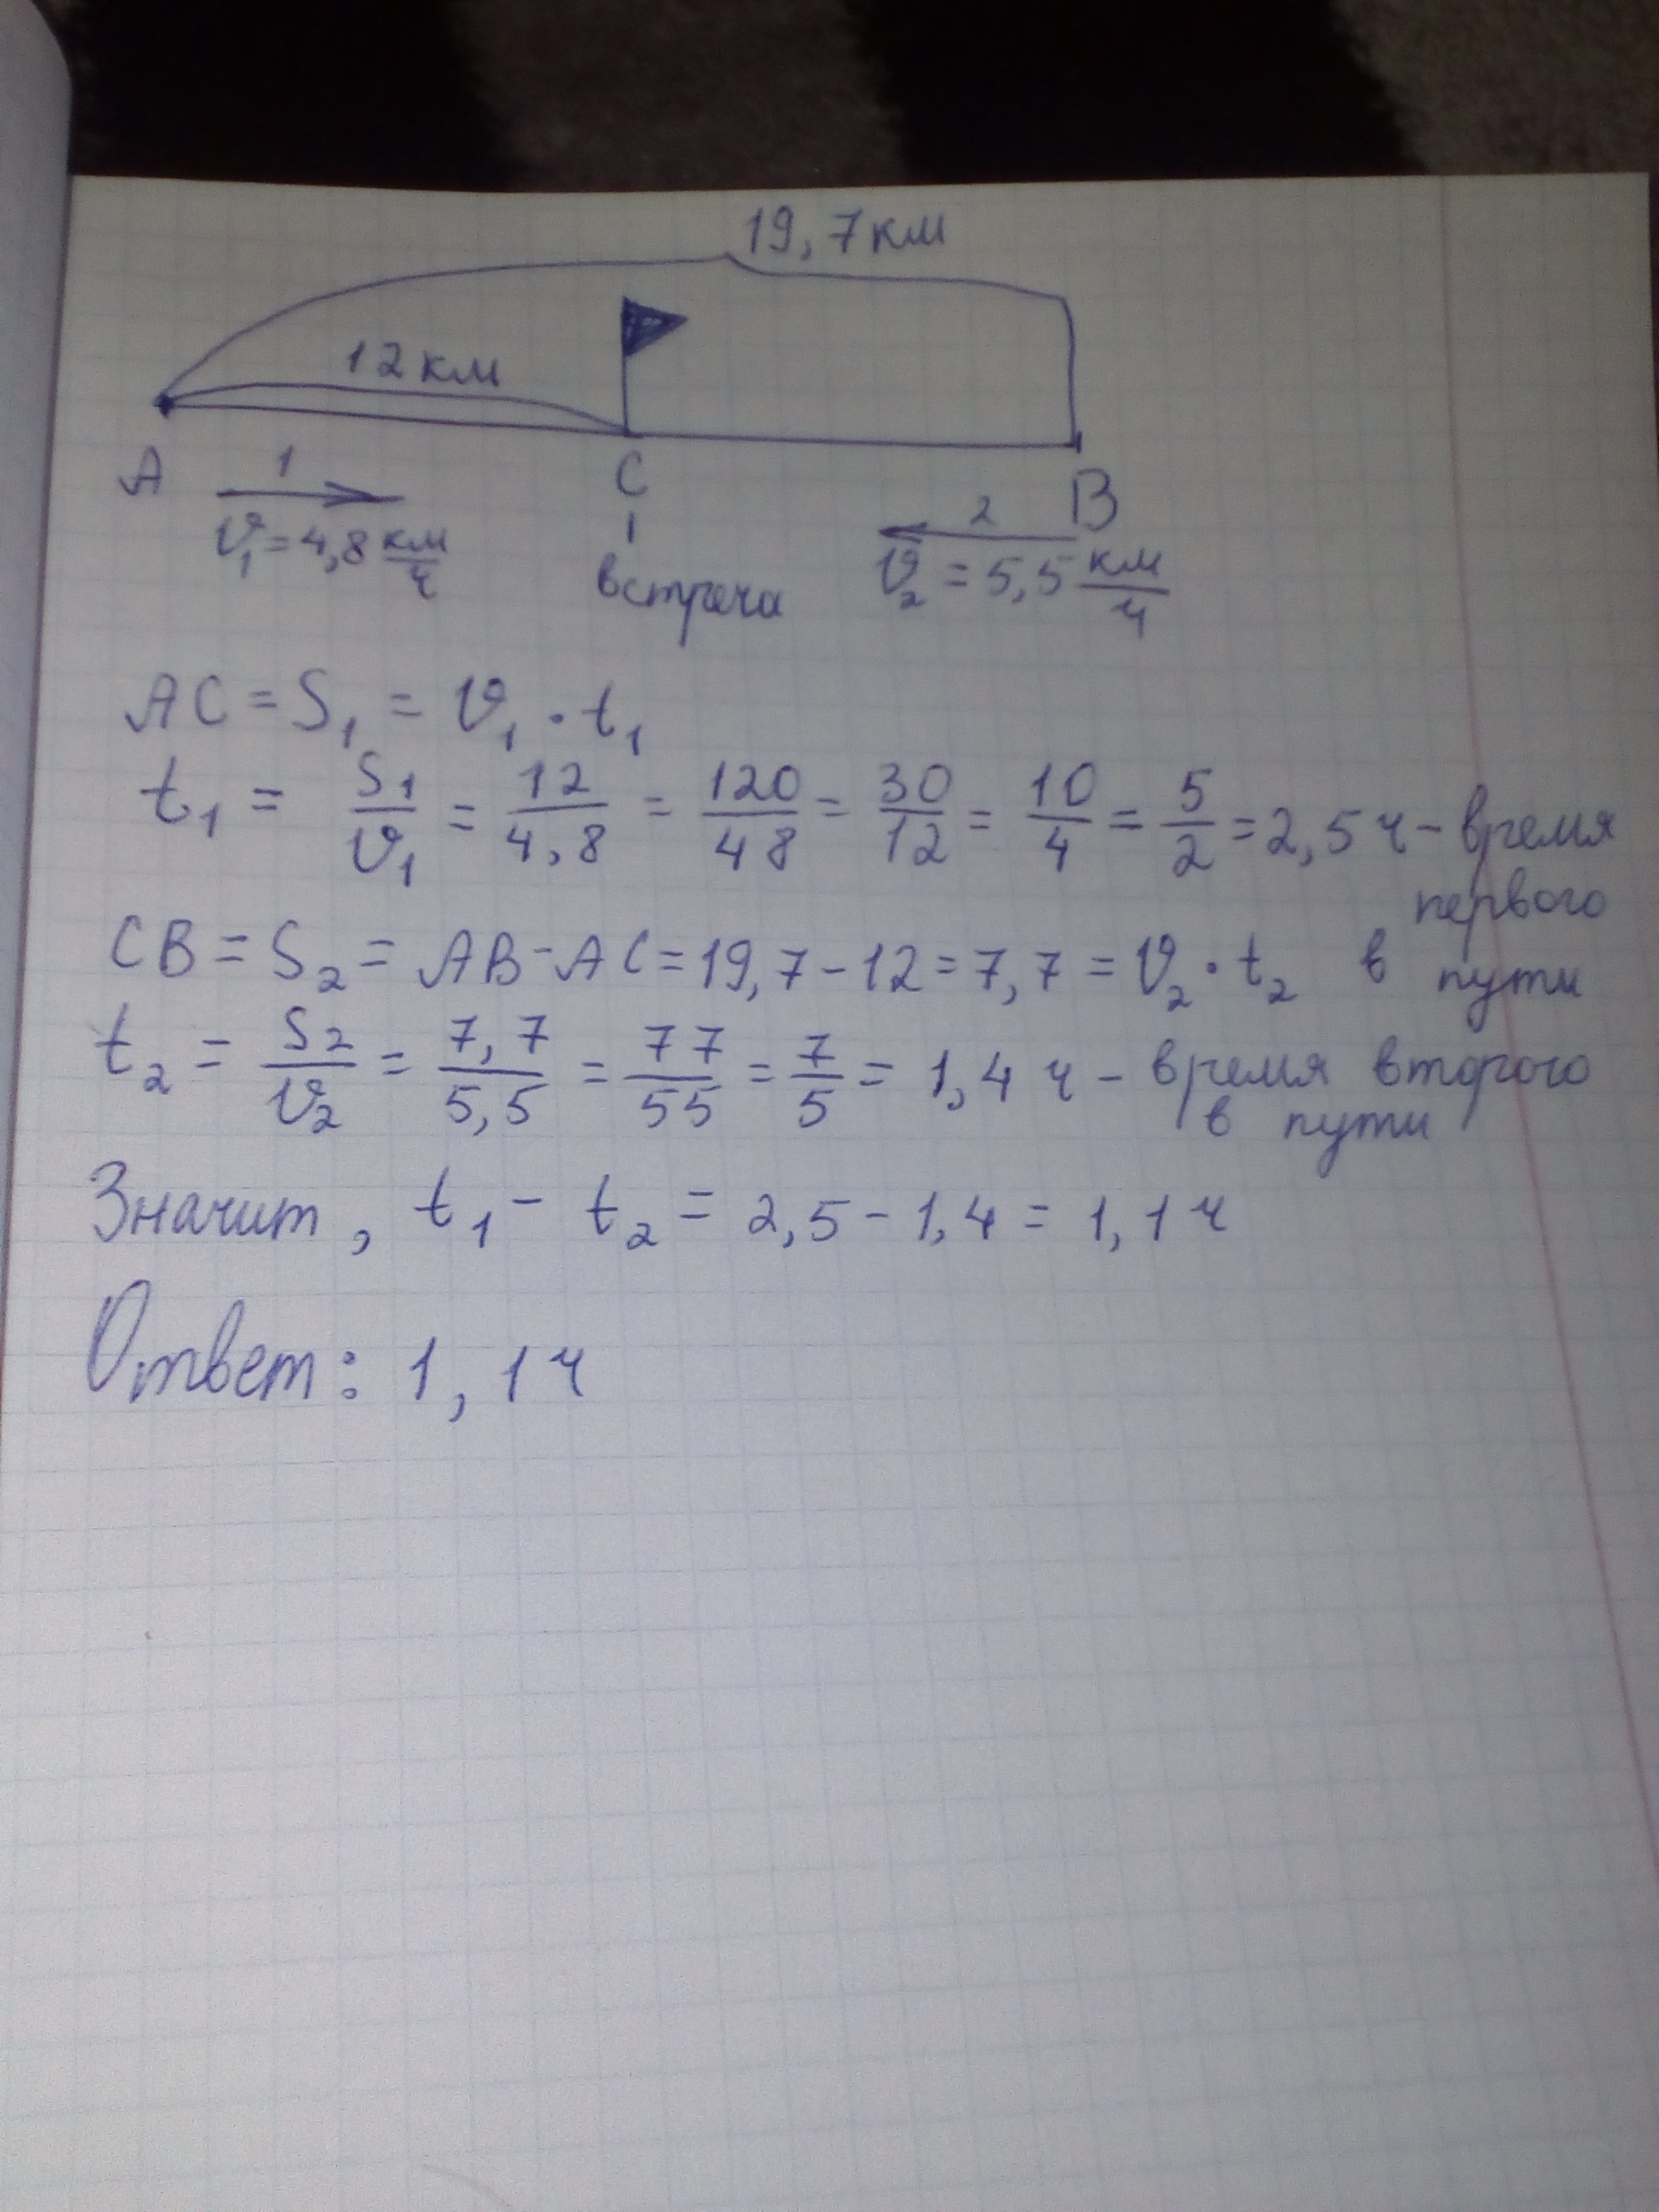 19,7км
12км
A 1 C 2 B
υ₁=4,8 км/ч встреча υ₂=5,5 км/ч
AC=S₁=υ₁·t₁
t₁ = S₁/υ₁ = 12/4,8 = 120/48 = 30/12 = 10/4 = 5/2 = 2,5 ч – время
первого
CB=S₂=AB-AC=19,7-12=7,7=υ₂·t₂ в пути
t₂ = S₂/υ₂ = 7,7/5,5 = 77/55 = 7/5 = 1,4 ч – время второго
в пути
Значит, t₁ - t₂ = 2,5-1,4 = 1,1 ч
Ответ: 1,1ч